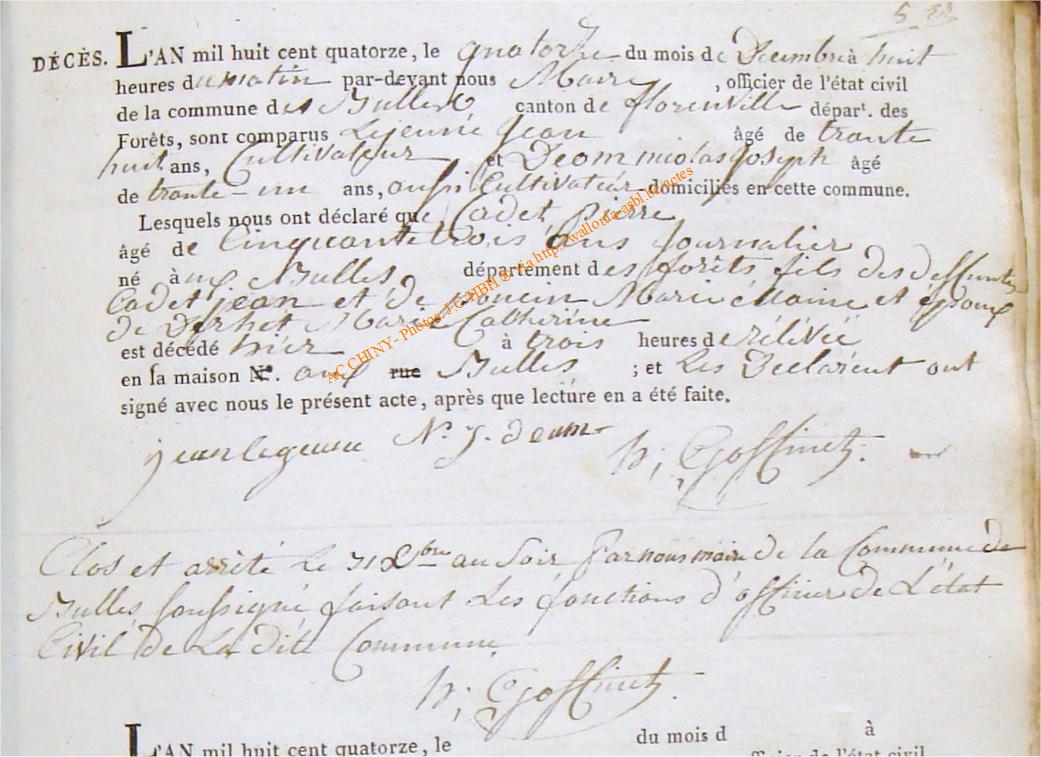 5
DÉCÈS. L'AN mil huit cent quatorze, le quatorze du mois de Decembre à huit
heures du matin par-devant nous Maire, officier de l'état civil
de la commune des Bulles canton de florenville départ. des
Forêts, sont comparus Lejeune Jean âgé de trante
huit ans, Cultivateur et Deom nicolas Joseph âgé
de trante-un ans, aussi Cultivateur domiciliés en cette commune.
Lesquels nous ont déclaré que Cadet Pierre
âgé de Cinquante trois ans Journalier
né à aux Bulles département des forêts fils des deffunts
Cadet jean et de poncin Marie et époux
de Marie Catherine
est décédé hier à trois heures de rélévée
en sa maison N.º aux rue Bulles ; et Les Declarent ont
signé avec nous le présent acte, après que lecture en a été faite.
jean legeune N. J. deom h; Goffinet.
Clos et arrêté Le 31 Xbre au Soir Par nous maire de la Commune de
Bulles soussigné faisant Les fonctions d'officier de L'état
Civil de La dite Commune
h; Goffinet.
L'AN mil huit cent quatorze, le du mois d à
officier de l'état civil
AC CHINY - Photos J.C NBH © via http://wallonia-asbl.be/actes